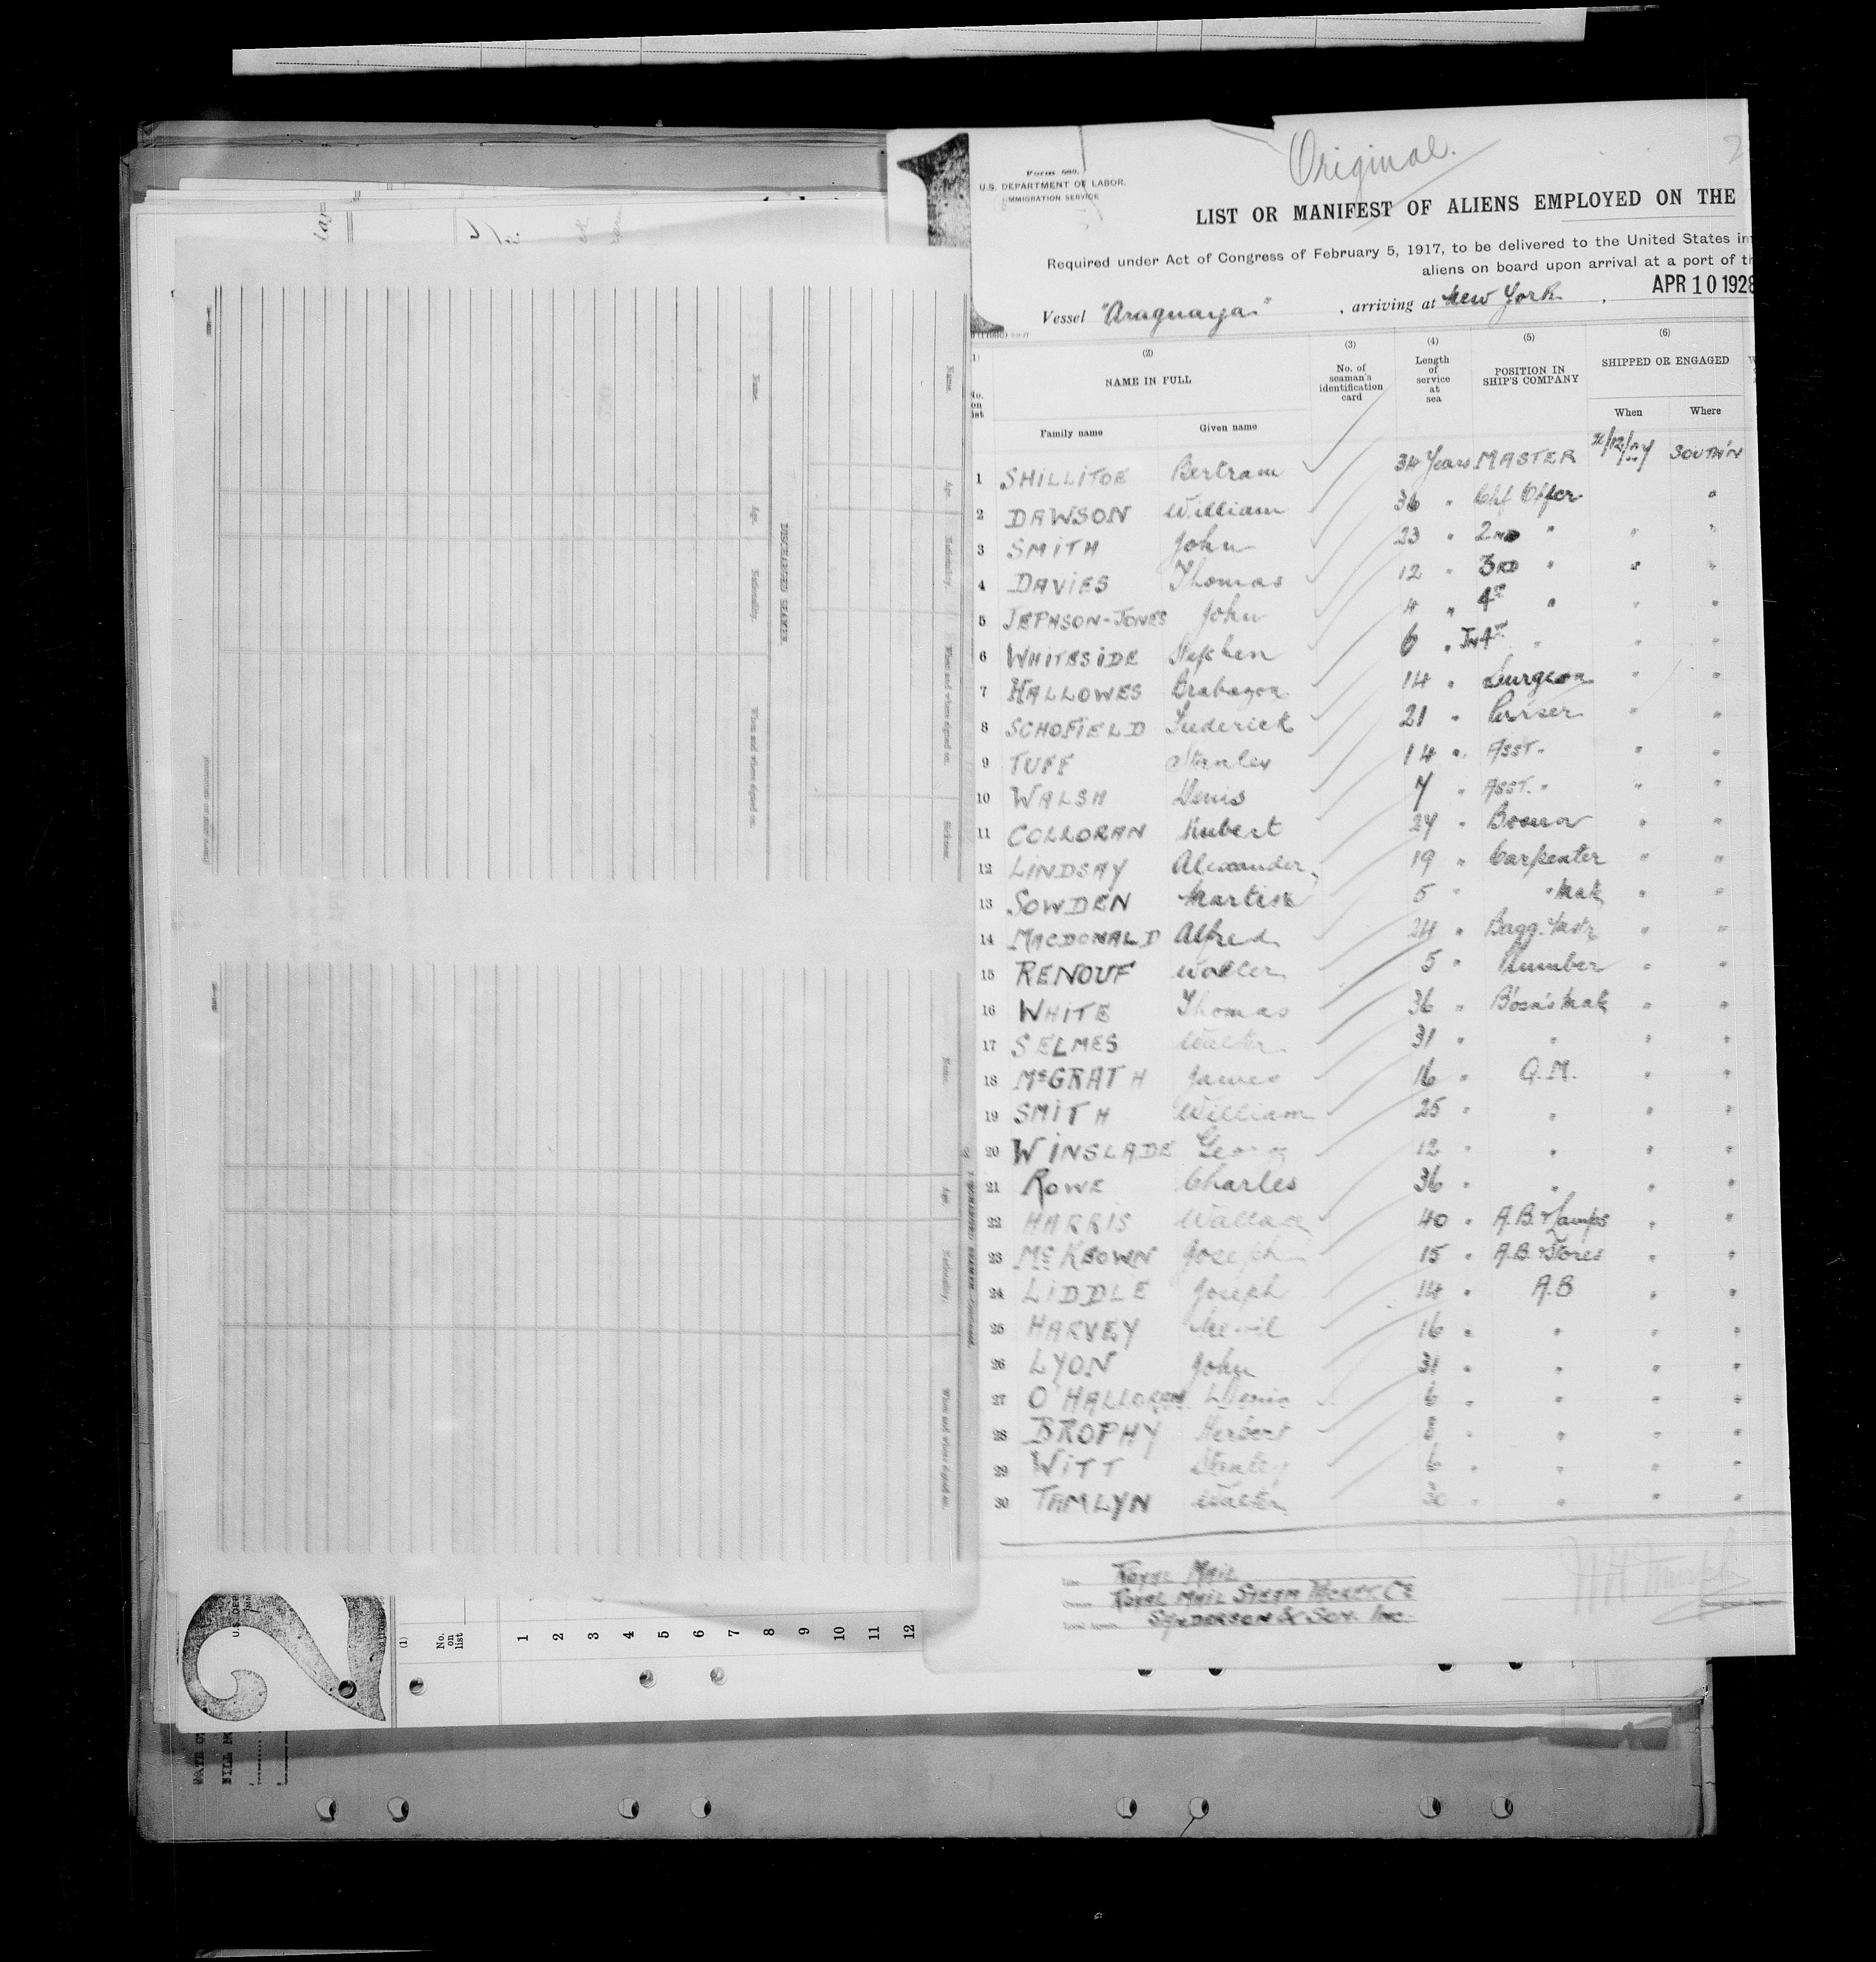 Original.
Form 689.
U.S. DEPARTMENT OF LABOR.
IMMIGRATION SERVICE
LIST OR MANIFEST OF ALIENS EMPLOYED ON THE
Required under Act of Congress of February 5, 1917, to be delivered to the United States im
aliens on board upon arrival at a port of th
Vessel "Araguaya" , arriving at New York , APR 10 1928
(1) (2) (3) (4) (5) (6)
No. on list NAME IN FULL No. of seaman's identification card Length of service at sea POSITION IN SHIP'S COMPANY SHIPPED OR ENGAGED
Family name Given name When Where
1 SHILLITOE Bertram 34 Years MASTER SOUTH'N
2 DAWSON William 36 " Chf Offcr "
3 SMITH John 23 " 2ND " " "
4 DAVIES Thomas 12 " 3RD " " "
5 JEPHSON-JONES John 4 " 4TH " " "
6 WHITESIDE Stephen 6 " Jn 4TH " " "
7 HALLOWES 14 " Surgeon " "
8 SCHOFIELD Frederick 21 " Purser " "
9 TUFF Stanley 14 " ASST. " "
10 WALSH Denis 7 " ASST. " " "
11 COLLORAN Hubert 27 " Bosun " "
12 LINDSAY Alexander 19 " Carpenter " "
13 SOWDEN Martin 5 " " Mate " "
14 MACDONALD Alfred 24 " Bagg. Mstr " "
15 RENOUF Walter 5 " Plumber " "
16 WHITE Thomas 36 " Bosn's Mate " "
17 SELMES Walter 31 " " " "
18 McGRATH James 16 " Q.M. " "
19 SMITH William 25 " " " "
20 WINSLADE George 12 " " " "
21 ROWE Charles 36 " " " "
22 HARRIS Wallace 40 " A.B. Lamps " "
23 McKEOWN Joseph 15 " A.B. Stores " "
24 LIDDLE Joseph 14 " A.B " "
25 HARVEY 16 " " " "
26 LYON John 31 " " " "
27 O'HALLORAN Denis 6 " " " "
28 BROPHY Herbert 8 " " " "
29 WITT Stanley 6 " " " "
30 TAMLYN Walter 30 " " " "
Line ROYAL MAIL
Owners ROYAL MAIL STEAM PACKET Co
Local Agents SANDERSON & SON. INC.
DISCHARGED SEAMEN.
Name. Age. Nationality. When and where signed on.
Name. Age. Nationality. When and where signed on. Sickness.
Name. Age. Nationality. When and where signed on.
2
(1)
No. on list
1 2 3 4 5 6 7 8 9 10 11 12